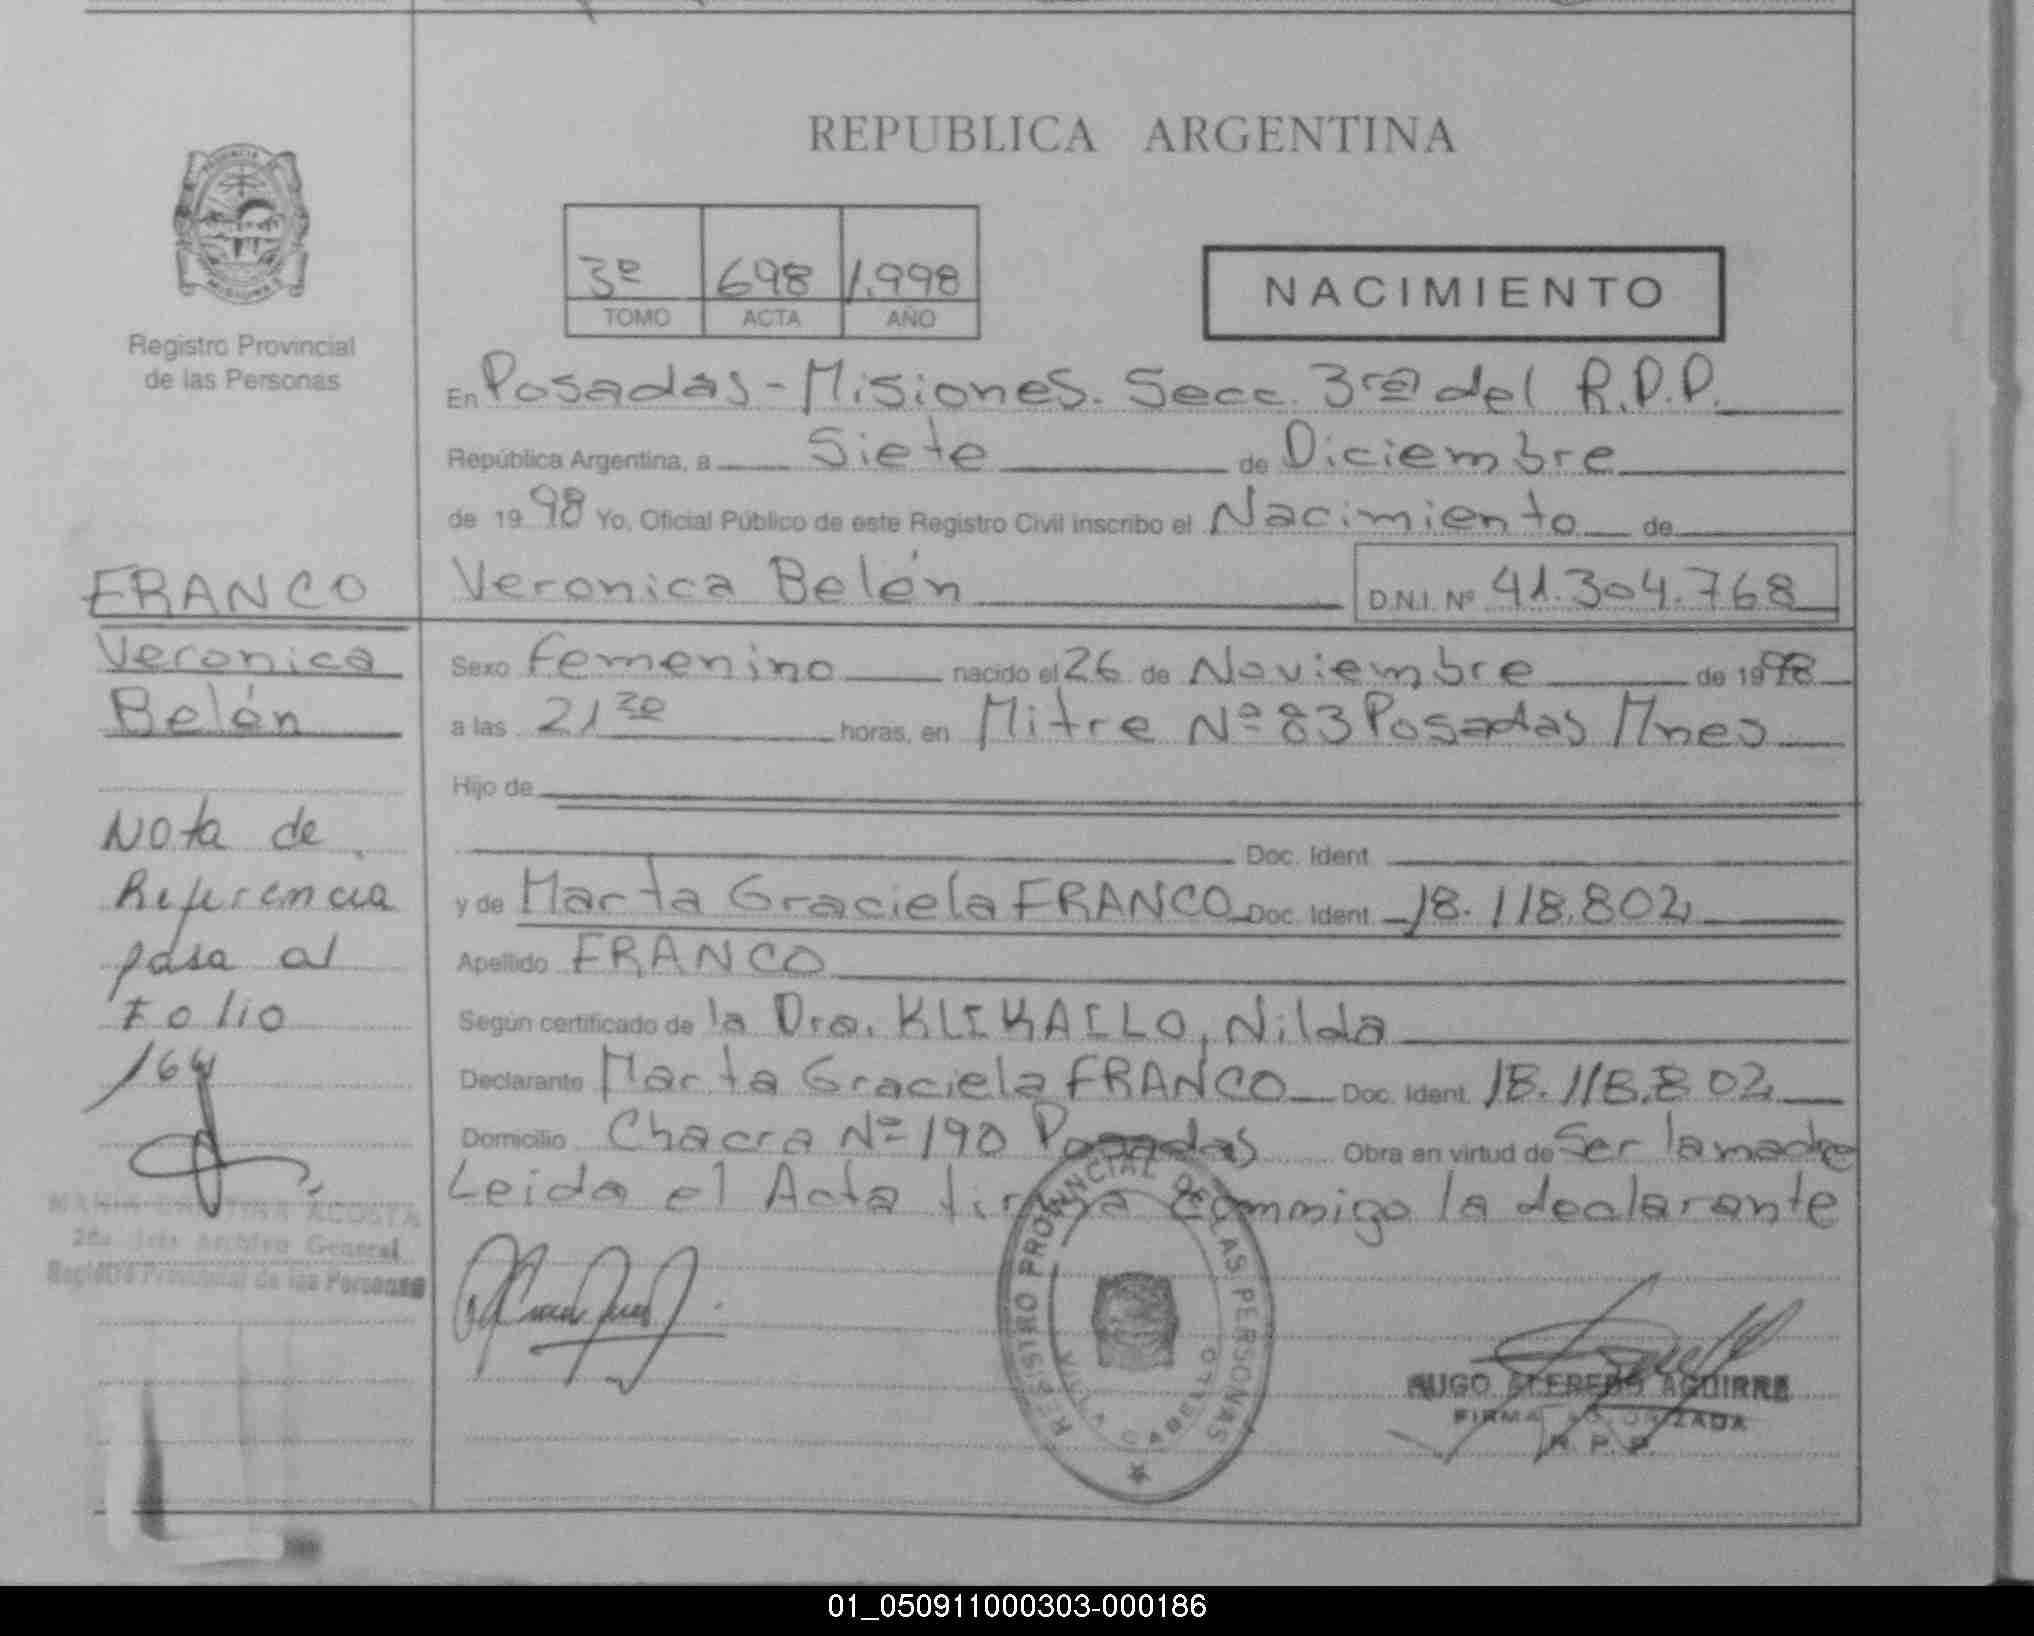 REPUBLICA ARGENTINA
3º 698 1.998
TOMO ACTA AÑO
NACIMIENTO
Registro Provincial
de las Personas
En Posadas - Misiones. Secc. 3ra del R.P.P.
República Argentina, a Siete de Diciembre
de 1998 Yo, Oficial Público de este Registro Civil inscribo el Nacimiento de
Veronica Belén D.N.I. Nº 41.304.768
Sexo Femenino nacido el 26 de Noviembre de 1998
a las 21 30 horas, en Mitre Nº 83 Posadas Mnes
Hijo de
Doc. Ident.
y de Marta Graciela FRANCO Doc. Ident. 18.118.802
Apellido FRANCO
Según certificado de la Dra. KLIKAILO, Nilda
Declarante Marta Graciela FRANCO Doc. Ident. 18.118.802
Domicilio Chacra Nº 190 Posadas Obra en virtud de Ser la madre
Leida el Acta firma commigo la declarante
FRANCO
Veronica
Belén
Nota de
Referencia
pasa al
Folio
164
MARIA CRISTINA ACOSTA
Archivo General
Registro Provincial de las Personas
REGISTRO PROVINCIAL DE LAS PERSONAS
HUGO ALFREDO AGUIRRE
FIRMA AUTORIZADA
R. P. P.
01_050911000303-000186